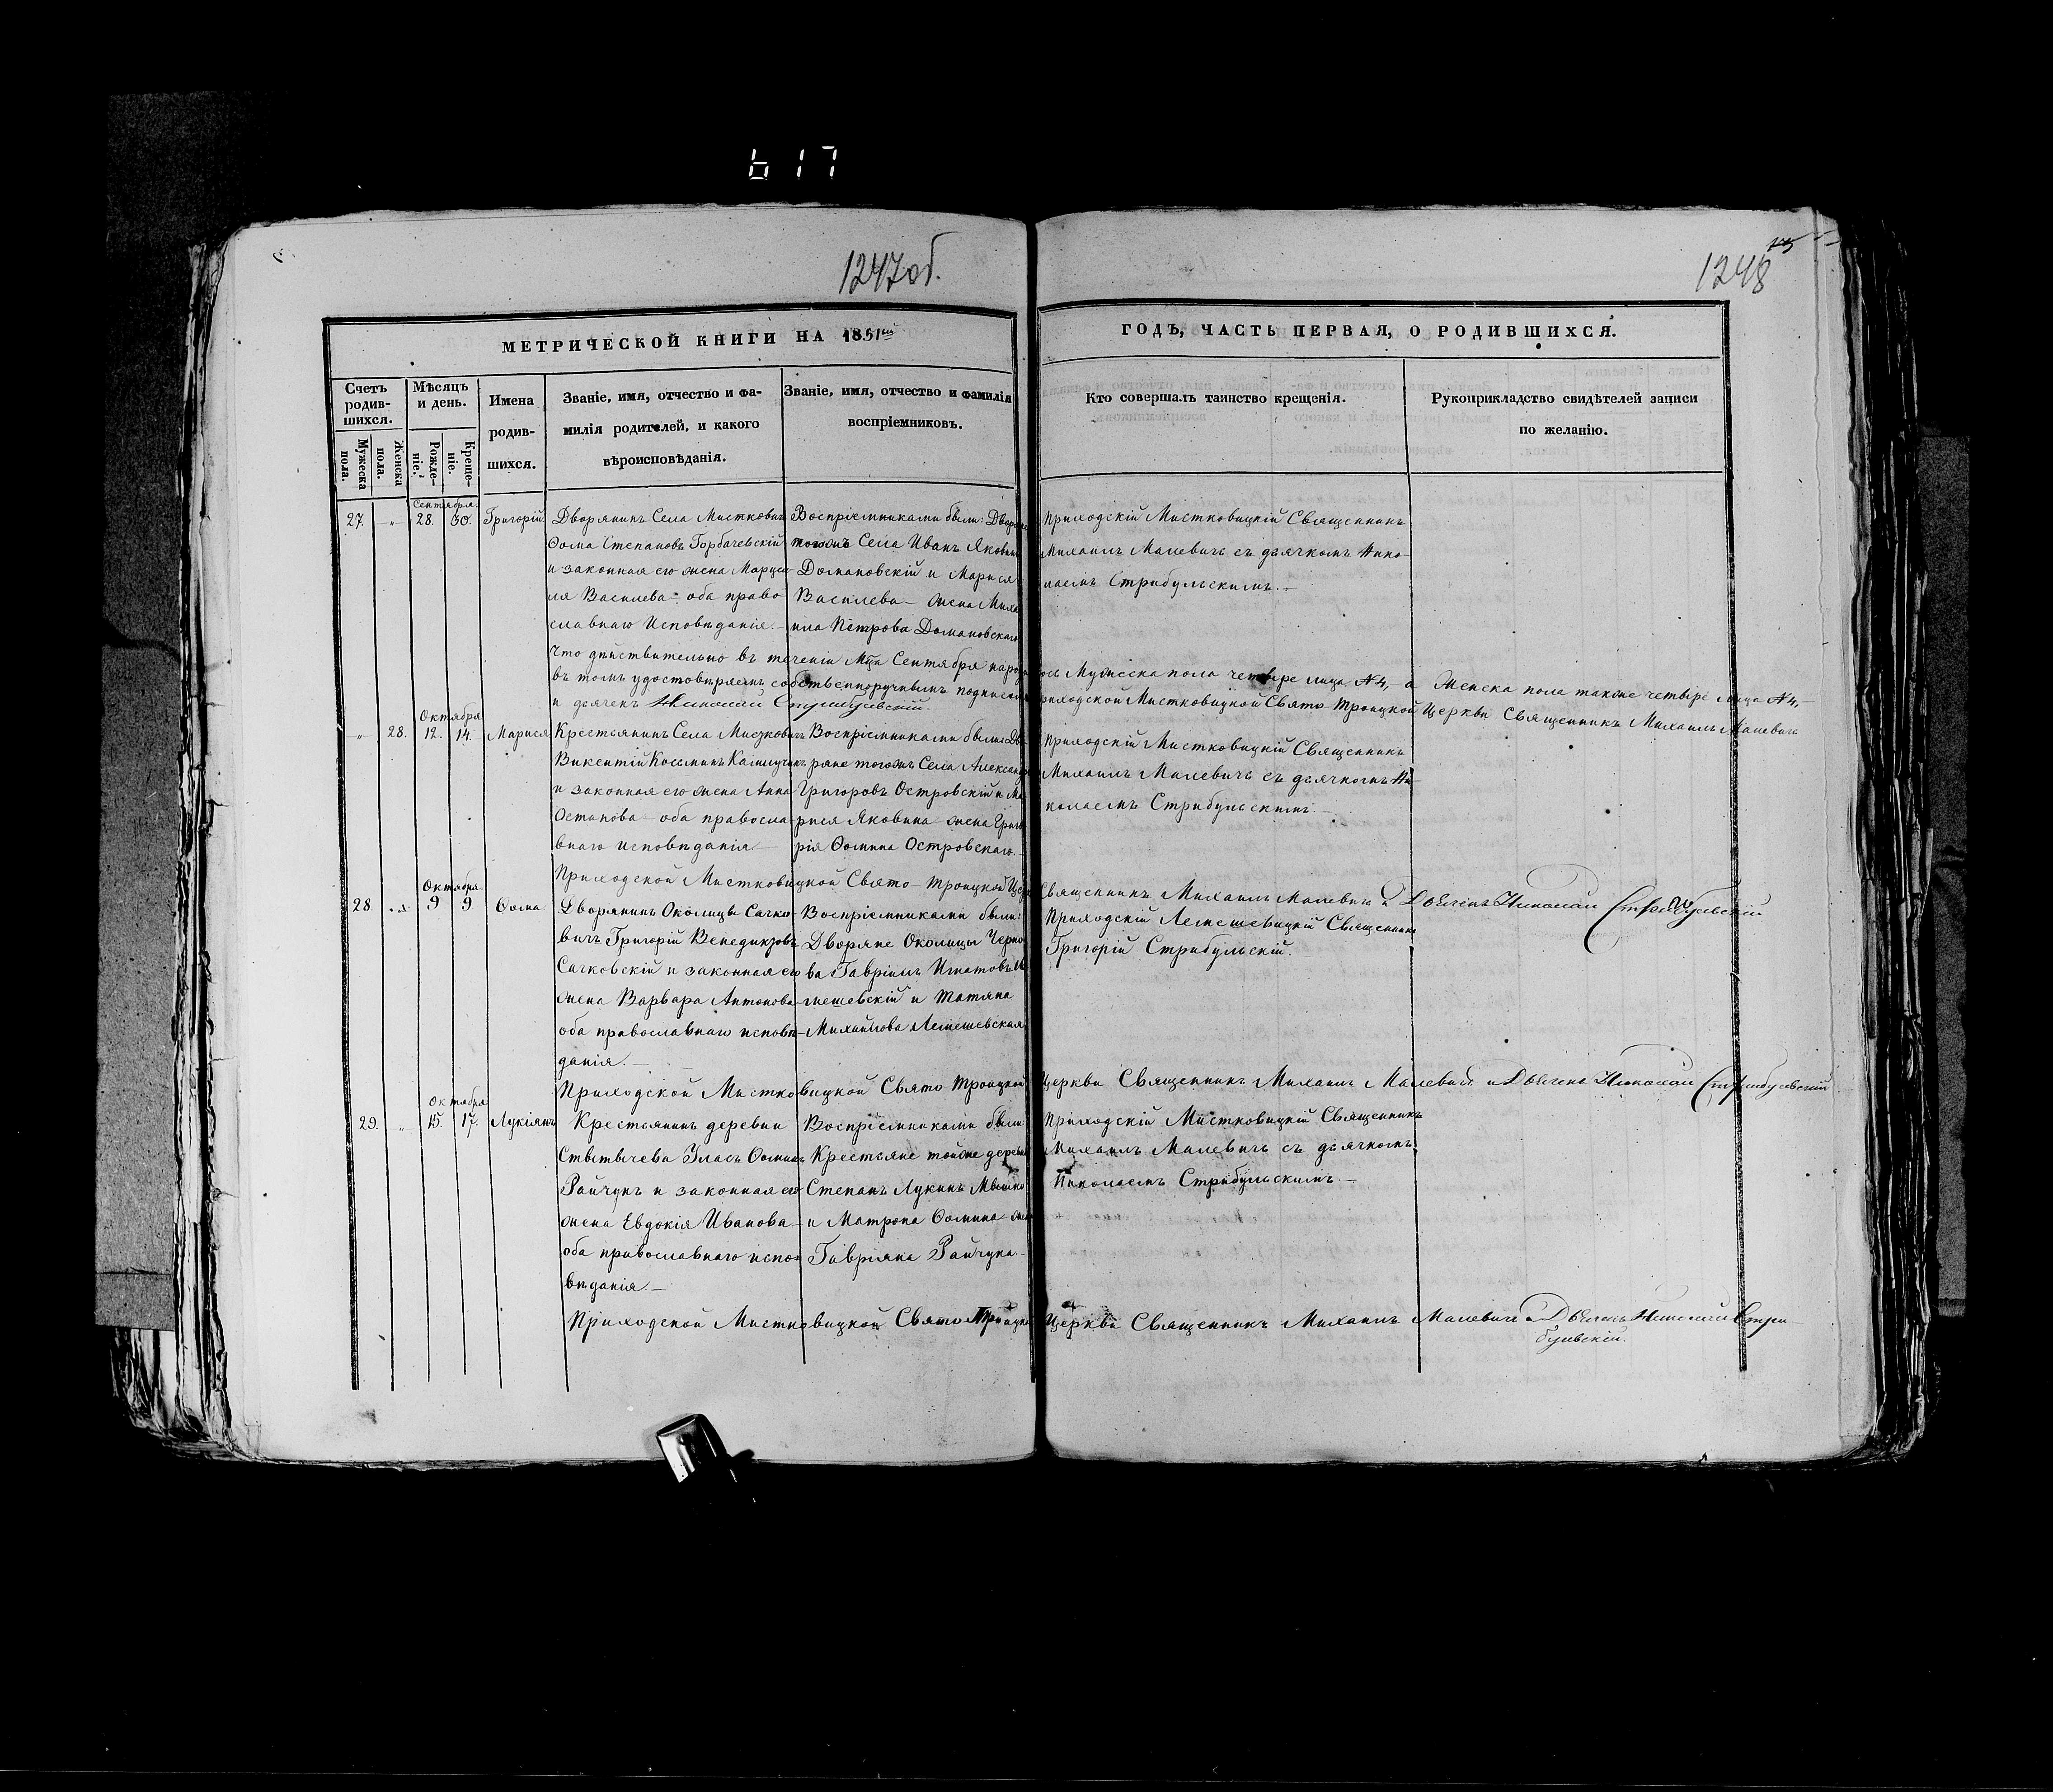 617
1247об.
1248
МЕТРИЧЕСКОЙ КНИГИ НА 1851ый
ГОДЪ, ЧАСТЬ ПЕРВАЯ, О РОДИВШИХСЯ.
Счетъ родив-
шихся.
Мужеска пола.
Женска пола.
Мѣсяцъ
и день.
Рожде-
ніе.
Креще-
ніе.
Имена
родив-
шихся.
Званіе, имя, отчество и фа-
милія родителей, и какого
вѣроисповѣданія.
Званіе, имя, отчество и фамилія
воспріемниковъ.
Кто совершалъ таинство крещенія.
Рукоприкладство свидѣтелей записи
по желанію.
27. „ Сентября 28. 30. Григорій
Дворянинъ Села Мистковичъ
Ѳома Степановъ Горбачевскій
и законная его жена Марце-
ля Василева оба право
славнаго Исповѣданія.
Воспріемниками были: Дворяне
тогожъ Села Иванъ Яковлевъ
Домановскій и Марися
Василева жена Миха
ила Петрова Домановскаго
Приходскій Мистковицкій Священникъ
Михаилъ Малевичъ съ дьячкомъ Нико-
лаемъ Стрибульскимъ.
Что дѣйствительно въ теченіи Мца Сентября народилось Мужеска пола четыре лица №4, а Женска пола также четыре лица №4,
въ томъ удостовѣряемъ собственноручнымъ подписомъ Приходской Мистковицкой Свято Троицкой Церкви Священникъ Михаилъ Малевичъ
и дьячекъ Николай Стрибульскій
„ 28. Октября 12. 14. Марися
Крестьянинъ Села Мистковичъ
Викентій Косминъ
и законная его жена Анна
Остапова оба правосла-
внаго исповѣданія
Воспріемниками были: Дво-
ряне тогожъ Села Александръ
Григоровъ Островскій и Ма
рися Яковлева жена Григо
рія Ѳомина Островскаго.
Приходскій Мистковицкій Священникъ
Михаилъ Малевичъ съ дьячкомъ Ни-
колаемъ Стрибульскимъ.
Приходской Мистковицкой Свято-Троицкой Церкви Священникъ Михаилъ Малевичъ и Дьячекъ Николай Стрибульскій
28. Октября 9 9 Ѳома
Дворянинъ Околицы Сачко-
вичъ Григорій Венедиктовъ
Сачковскій и законная его
жена Варвара Антонова
оба православнаго исповѣ-
данія.
Воспріемниками были:
Дворяне Околицы Черно
ва Гавріилъ Игнатовъ Ле
мешевскій и Татяна
Михайлова Лемешевская
Приходскій Лемешевицкій Священникъ
Григорій Стрибульскій.
Приходской Мистковицкой Свято Троицкой Церкви Священникъ Михаилъ Малевичъ и Дьячекъ Николай Стрибульскій
29. „ Октября 15. 17. Лукіянъ
Крестьянинъ деревни
Власъ Ѳоминъ
Райчукъ и законная его
жена Евдокія Иванова
оба православнаго испо-
вѣданія.
Воспріемниками были:
Крестьяне тойже деревни
Степанъ Лукинъ
и Матрона Ѳомина жена
Гавріяна Райчука
Приходскій Мистковицкій Священникъ
Михаилъ Малевичъ съ дьячкомъ
Николаемъ Стрибульскимъ.
Приходской Мистковицкой Свято Троицкой Церкви Священникъ Михаилъ Малевичъ и Дьячекъ Николай Стри-
бульскій.